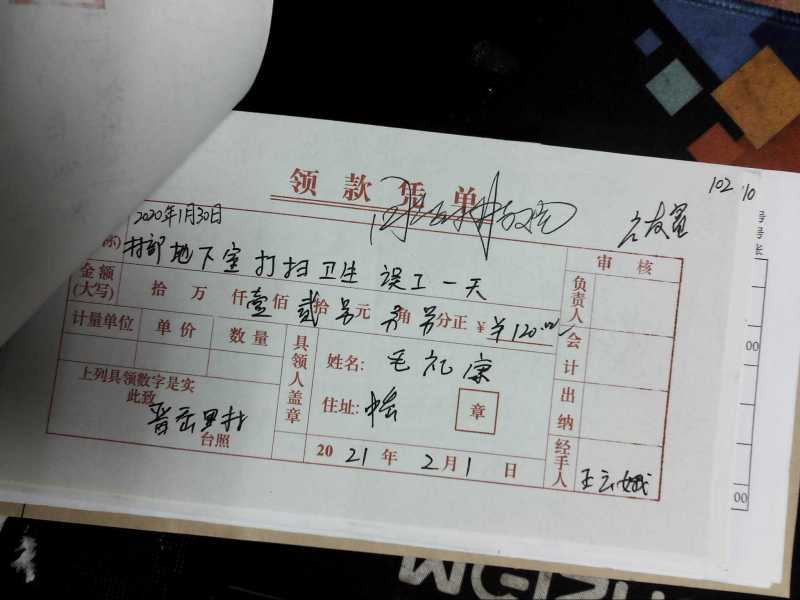 102 10
领款凭单
2020年1月30日
村部地下室打扫卫生 误工一天
审核
金额
(大写)
拾万仟壹佰贰拾另元另角另分正 ¥ ¥120.00
负责人
计量单位 单价 数量
具领人盖章
姓名: 毛礼康
会计
上列具领数字是实
此致
住址:
章
出纳
台照
2021年2月1日
经手人
王云娥
号
号
张
00
00